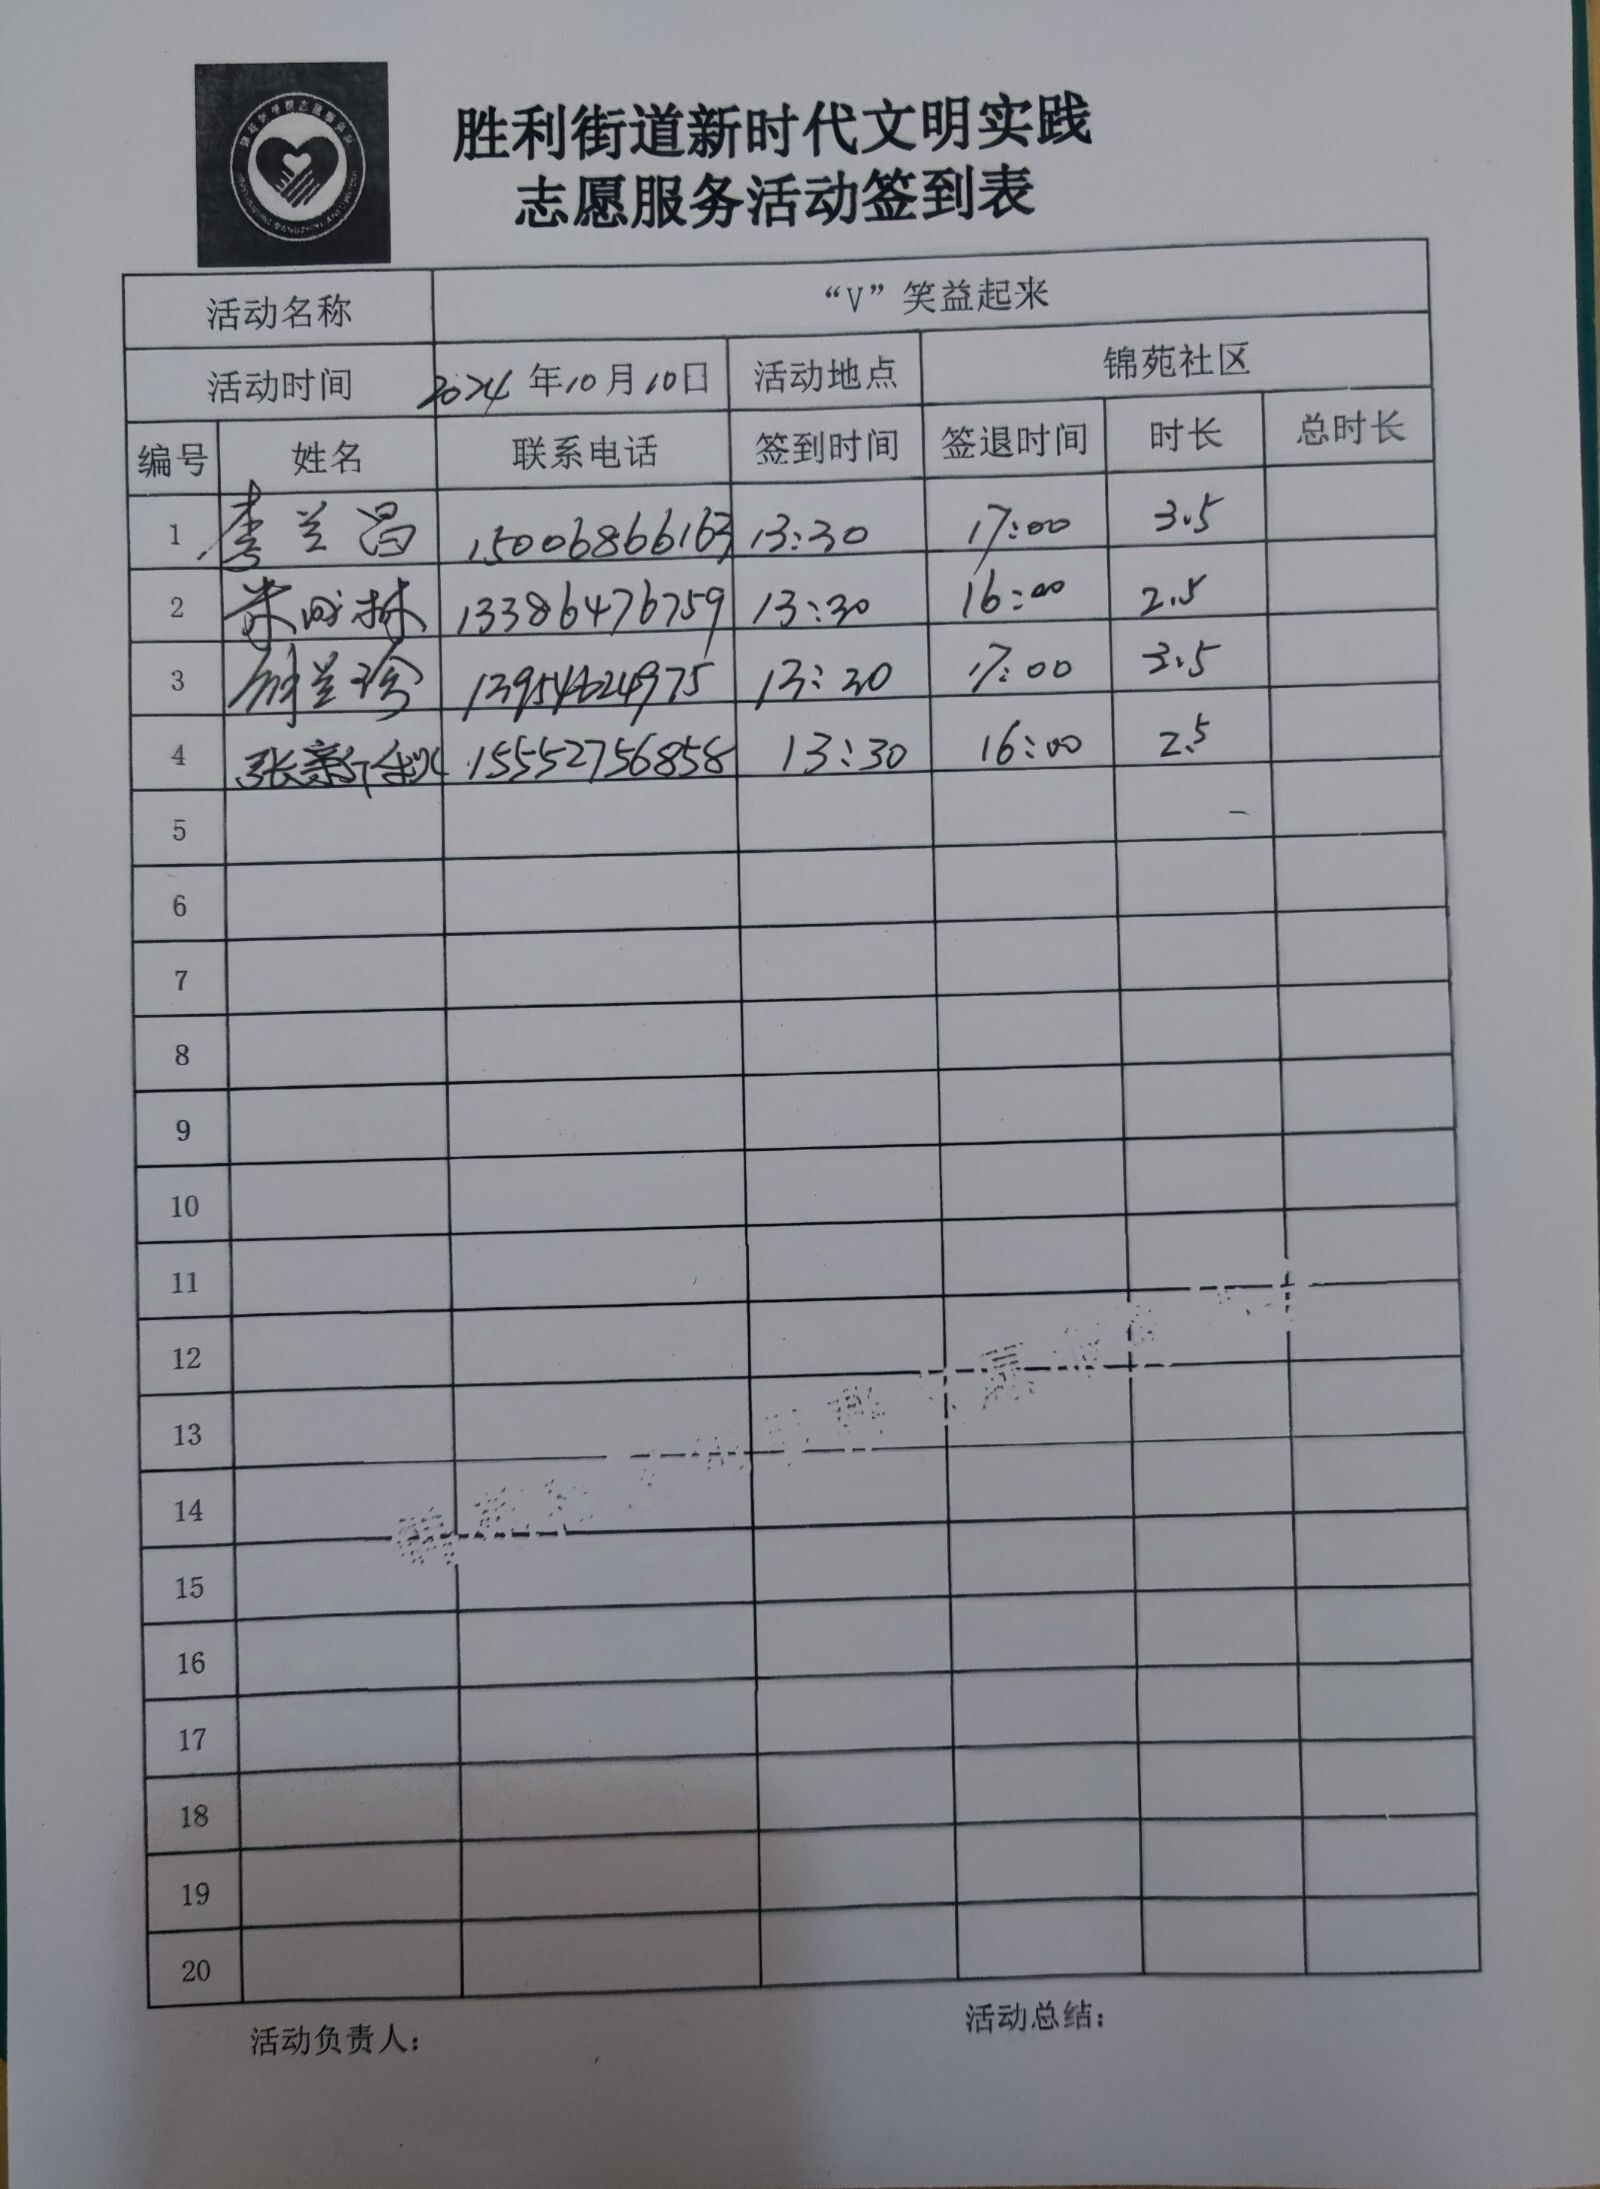 胜利街道新时代文明实践
志愿服务活动签到表
活动名称 “V”笑益起来
活动时间 2024年10月10日 活动地点 锦苑社区
编号 姓名 联系电话 签到时间 签退时间 时长 总时长
1 李兰昌 15006866163 13:30 17:00 3.5
2 13386476759 13:30 16:00 2.5
3 兰珍 13954624975 13:30 17:00 3.5
4 张新 15552756858 13:30 16:00 2.5
5
6
7
8
9
10
11
12
13
14
15
16
17
18
19
20
活动负责人： 活动总结：